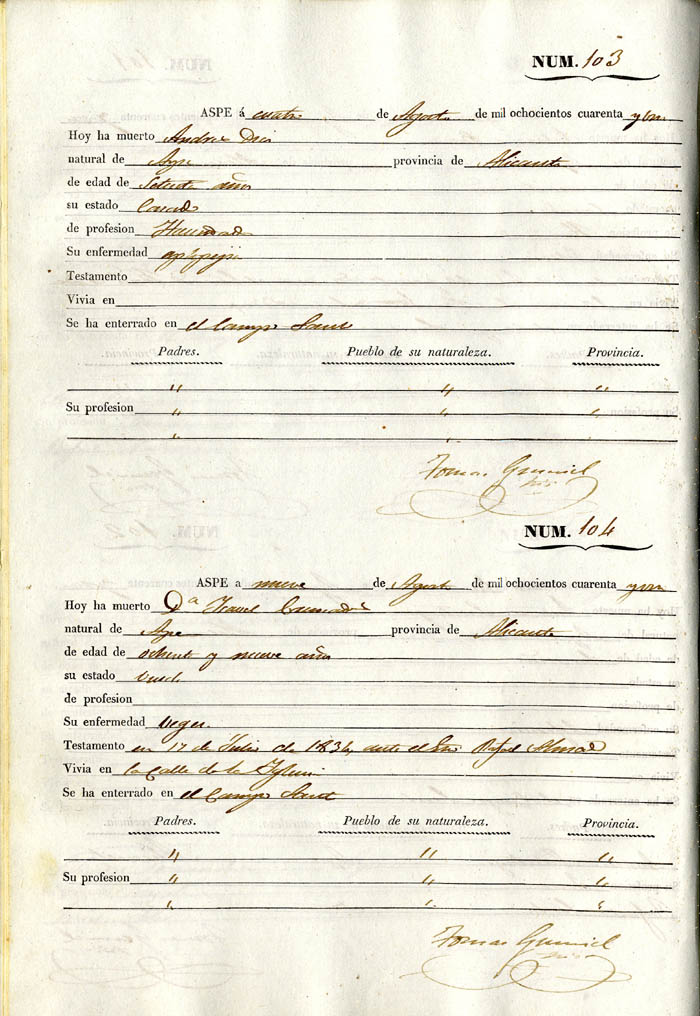 NUM. 103
ASPE á cuatro de Agosto de mil ochocientos cuarenta y un
Hoy ha muerto Andres
natural de Aspe provincia de Alicante
de edad de Setenta años
su estado Casado
de profesion
Su enfermedad
Testamento
Vivia en
Se ha enterrado en el Campo Santo
Padres. Pueblo de su naturaleza. Provincia.
" " "
Su profesion " " "
" " "
Tomas
NUM. 104
ASPE a nueve de Agosto de mil ochocientos cuarenta y un
Hoy ha muerto Dª Isabel
natural de Aspe provincia de Alicante
de edad de ochenta y nueve años
su estado Viuda
de profesion
Su enfermedad vegez
Testamento en 17 de Julio de 1834, ante el Rafael
Vivia en la Calle de la Yglesia
Se ha enterrado en el Campo Santo
Padres. Pueblo de su naturaleza. Provincia.
" " "
Su profesion " " "
" " "
Tomas